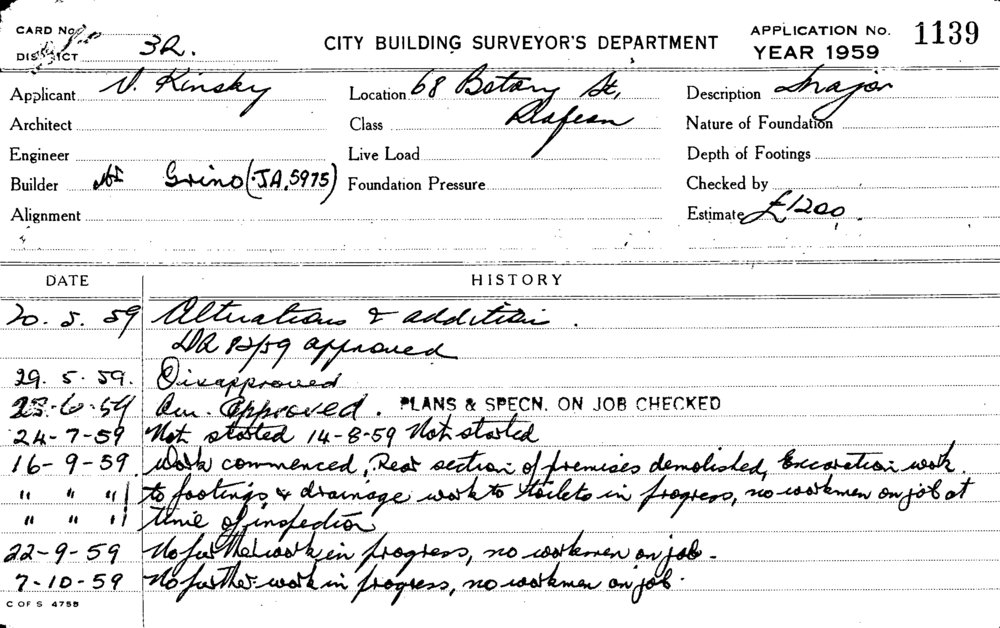 CARD No.
DISTRICT 32.
CITY BUILDING SURVEYOR'S DEPARTMENT
APPLICATION No. 1139
YEAR 1959
Applicant V. Kinsky
Location 68 Botany St,
Description Major
Architect
Class Redfern
Nature of Foundation
Engineer
Live Load
Depth of Footings
Builder Mr Grino (JA.5975)
Foundation Pressure
Checked by
Alignment
Estimate £1200.
DATE HISTORY
20. 5. 59 Alterations & addition.
DA 82/59 approved
29. 5. 59. Disapproved
25-6-59 Am. Approved. PLANS & SPECN. ON JOB CHECKED
24-7-59 Not started 14-8-59 Not started
16-9-59 Work commenced, Rear section of premises demolished, Excavation work
" " " to footings & drainage work to toilets in progress, no workmen on job at
" " " time of inspection
22-9-59 No further work in progress, no workmen on job.
7-10-59 No further work in progress, no workmen on job.
C OF S 4755